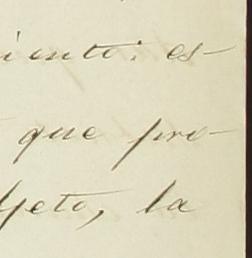 iento: es-
que pro-
jeto, la